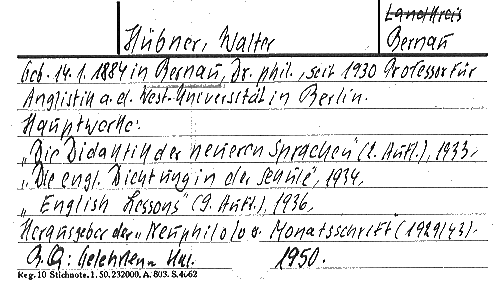 Hübner, Walter
Landkreis
Bernau
Geb. 14.1.1884 in Bernau, Dr. phil., seit 1930 Professor für
Anglistik a. d. West-Universität in Berlin.
Hauptwerke:
„Die Didaktik der neueren Sprachen" (2. Aufl.), 1933,
„Die engl. Dichtung in der Schule", 1934,
„English Lessons" (9. Aufl.), 1936,
Herausgeber der „Neuphilolog. Monatsschrift (1929/43).
Gelehrten- 1950.
Reg. 10 Stichnote. 1. 50. 232000. A. 803. S. 4662